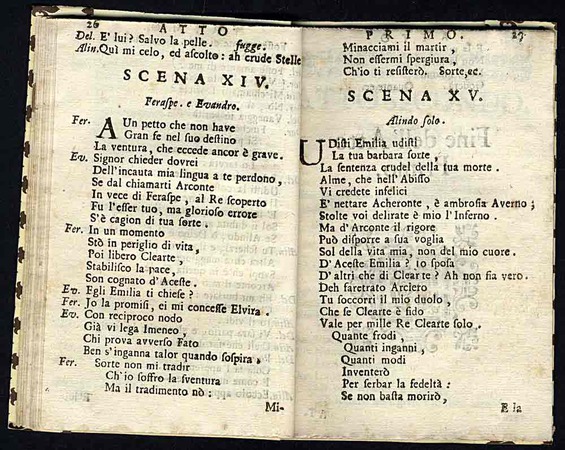 26
ATTO
Del. E' lui? Salvo la pelle. fugge.
Alin. Quì mi celo, ed ascolto: ah crude Stelle
SCENA XIV.
Feraspe. e Evandro.
Fer. A Un petto che non have
Gran fe nel suo destino
La ventura, che eccede ancor è grave.
Ev. Signor chieder dovrei
Dell'incauta mia lingua a te perdono,
Se dal chiamarti Arconte
In vece di Feraspe, al Re scoperto
Fu l'esser tuo, ma glorioso errore
S'è cagion di tua sorte.
Fer. In un momento
Stò in periglio di vita,
Poi libero Clearte,
Stabilisco la pace,
Son cognato d'Aceste.
Ev. Egli Emilia ti chiese?
Fer. Jo la promisi, ei mi concesse Elvira.
Ev. Con reciproco nodo
Già vi lega Imeneo,
Chi prova avverso Fato
Ben s'inganna talor quando sospira.
Fer. Sorte non mi tradir
Ch'io soffro la sventura
Ma il tradimento nò:
Mi-
PRIMO.
27
Minacciami il martir,
Non essermi spergiura,
Ch'io ti resisterò. Sorte, ec.
SCENA XV.
Alindo solo.
UDisti Emilia udisti
La tua barbara sorte,
La sentenza crudel della tua morte.
Alme, che nell'Abisso
Vi credete infelici
E' nettare Acheronte, è ambrosia Averno;
Stolte voi delirate è mio l'Inferno.
Ma d'Arconte il rigore
Può disporre a sua voglia
Sol della vita mia, non del mio cuore.
D'Aceste Emilia? io sposa
D'altri che di Clearte? Ah non sia vero.
Deh faretrato Arclero
Tu soccorri il mio duolo,
Che se Clearte è fido
Vale per mille Re Clearte solo.
Quante frodi,
Quanti inganni,
Quanti modi
Inventerò
Per serbar la fedeltà:
Se non basta morirò,
E la